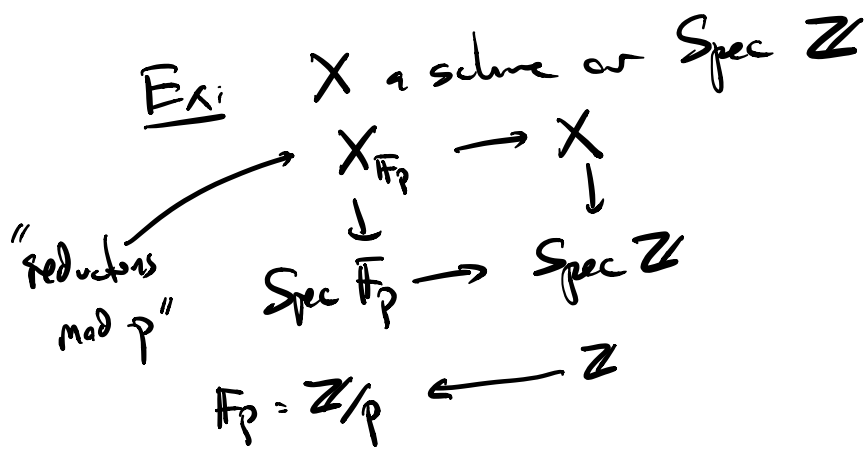 Ex: X a scheme over Spec ℤ
X_{𝔽_p} → X
↓ ↓
"reductions
mod p"
Spec 𝔽_p → Spec ℤ
𝔽_p = ℤ/p ← ℤ